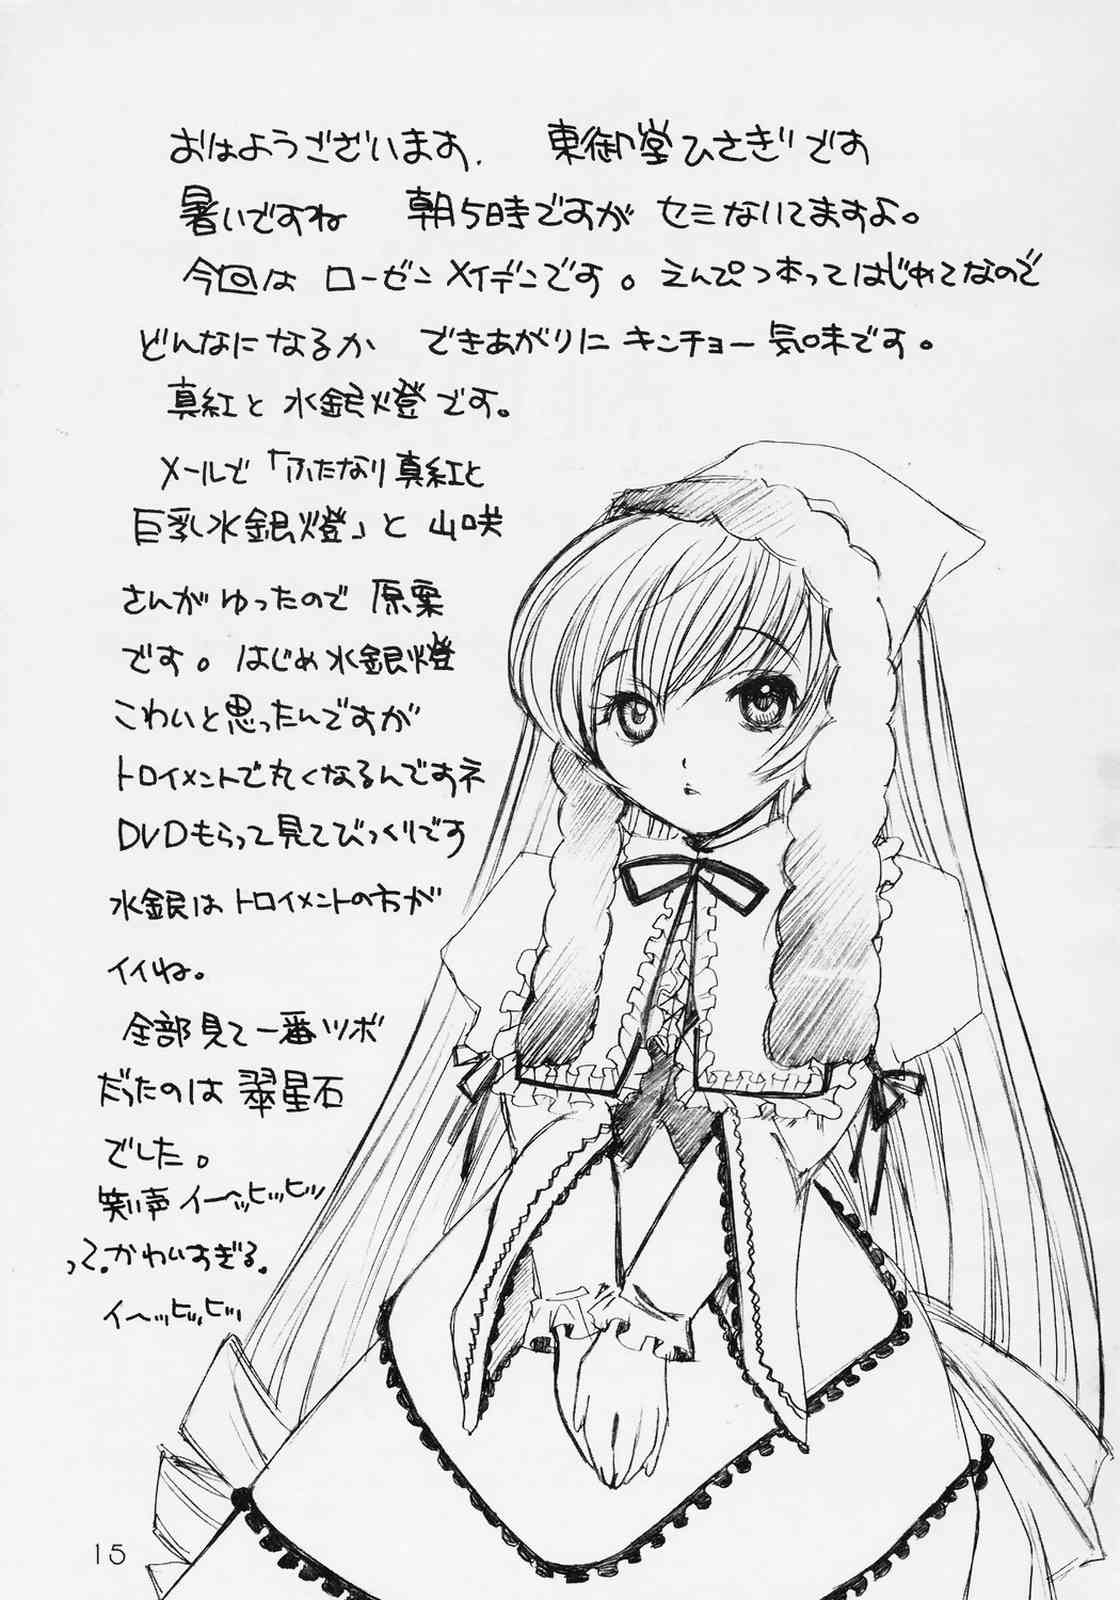 おはようございます、 東御堂ひさぎです
暑いですね 朝5時ですが セミないてますよ。
今回は ローゼンメイデンです。えんぴつ本ってはじめてなので
どんなになるか できあがりに キンチョー気味です。
真紅と 水銀燈です。
メールで「ふたなり真紅と
巨乳水銀燈」と 山咲
さんが ゆったので 原案
です。はじめ水銀燈
こわいと思ったんですが
トロイメントで丸くなるんですネ
DVDもらって見てびっくりです
水銀は トロイメントの方が
イイね。
全部見て一番ツボ
だったのは 翠星石
でした。
笑い声 イーッヒッヒッ
って。かわいすぎる。
イーッヒッヒッ
15